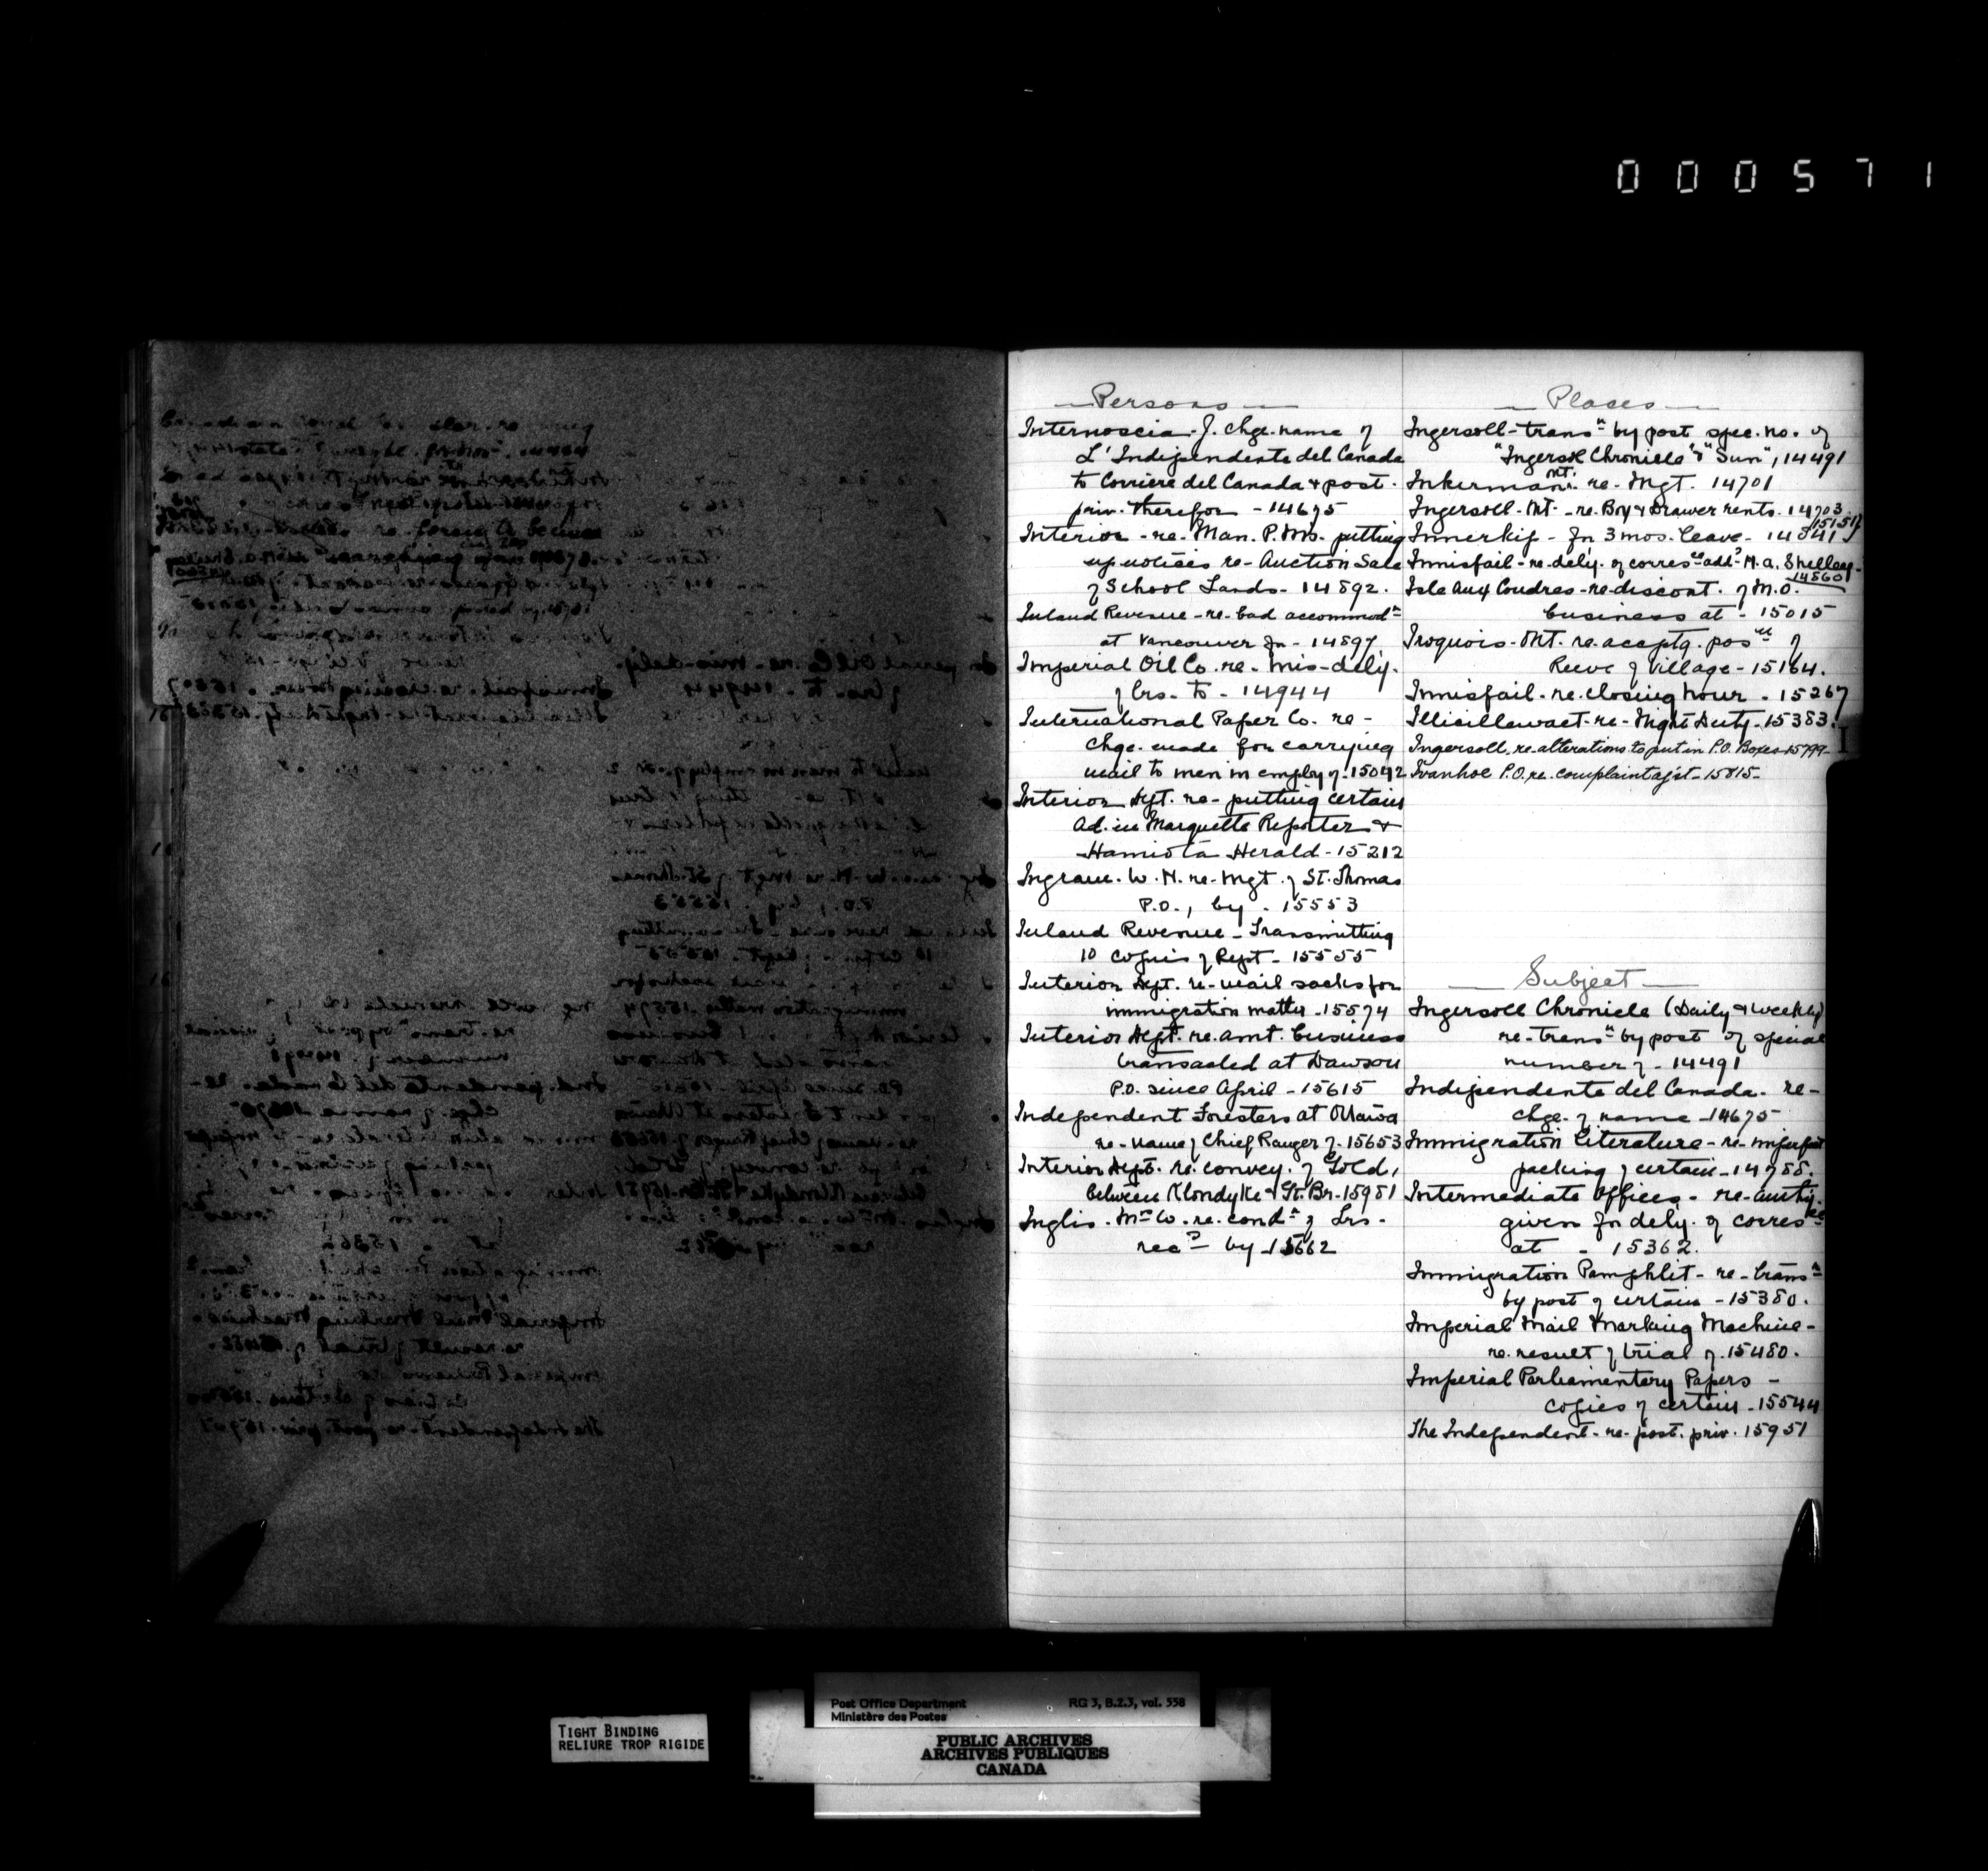 000571
Persons
Internoscia. J. Chge. name of
L'Indipendente del Canada
to Corriere del Canada & post.
priv. therefor - 14675
Interior - re. Man. P.Ms. putting
up notices re- Auction Sale
of School Lands - 14892.
Inland Revenue - re- bad accommodn
at Vancouver fr - 14897
Imperial Oil Co. re- mis-dely.
of Lrs. to - 14944
International Paper Co. re -
Chge. made for carrying
mail to men in employ of. 15042
Interior Dept. re- putting certain
Ad. in Marquette Reporter &
Hamiota Herald - 15212
Ingram. W. H. re- Mgt. of St. Thomas
P.O., by - 15553
Inland Revenue - Transmitting
10 copies of Rept - 15555
Interior Dept. re- mail sacks for
immigration matter - 15574
Interior Dept. re. amt. business
transacted at Dawson
P.O. since April - 15615
Independent Foresters at Ottawa
re- name of Chief Ranger of - 15653
Interior Dept. re. convey. of Gold,
between Klondyke & St. Br. - 15981
Inglis. Mrs W. re. condn of Lrs -
recd by - 15662
Places
Ingersoll - transn by post spec. no. of
"Ingersoll Chronicle" & "Sun", 14491
Inkerman Mt. re- Mgt. 14701
Ingersoll - Mt - re. Box & Drawer rents. 14703.
15151
Innerkip - fr 3 mos. leave - 14841
Innisfail - re- dely. of corresce addd H. A. Shelley -
14860
Isle aux Coudres - re- discont. of M.O.
business at - 15015
Iroquois - Mt. re. acceptg. posn of
Reeve of Village - 15164.
Innisfail - re. closing hour - 15267
Illicillewaet - re- Night Duty - 15383.
Ingersoll. re. alterations to put in P.O. Boxes - 15799
Ivanhoe P.O. re. complaint agst - 15815 -
I
Subject
Ingersoll Chronicle (Daily & Weekly)
re- transn by post of special
number of - 14491
Indipendente del Canada - re-
chge. of name - 14675
Immigration Literature - re- imperfect
packing of certain - 14788.
Intermediate Offices - re- authy.
given for dely. of corresce
at - 15362.
Immigration Pamphlet - re- transn
by post of certain - 15380.
Imperial Mail Marking Machine -
re. result of trial of. 15480.
Imperial Parliamentary Papers -
copies of certain - 15544
The Independent - re- post. priv. 15951
TIGHT BINDING
RELIURE TROP RIGIDE
Post Office Department RG 3, B.2.3, vol. 558
Ministère des Postes
PUBLIC ARCHIVES
ARCHIVES PUBLIQUES
CANADA